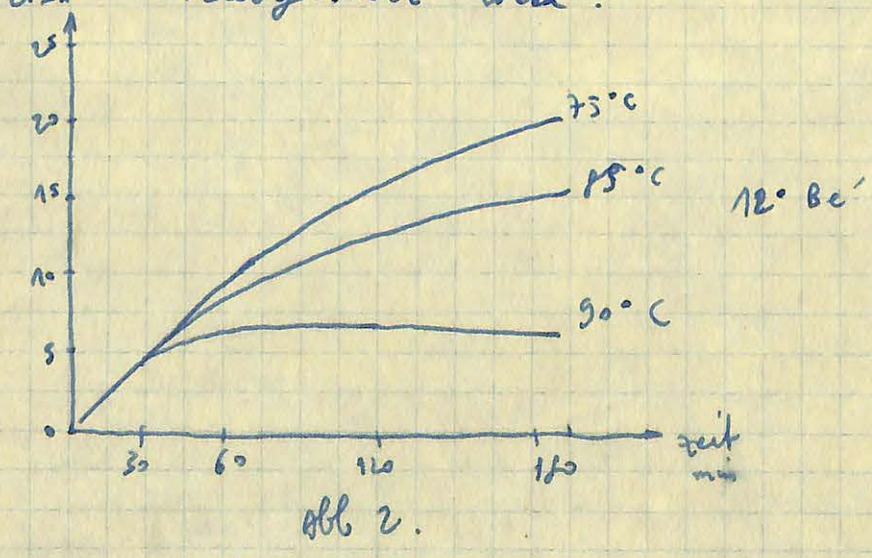 25
20
15
10
5
0
75°C
85°C
90°C
12° Bé
30 60 120 180
zeit
min
Abb 2.